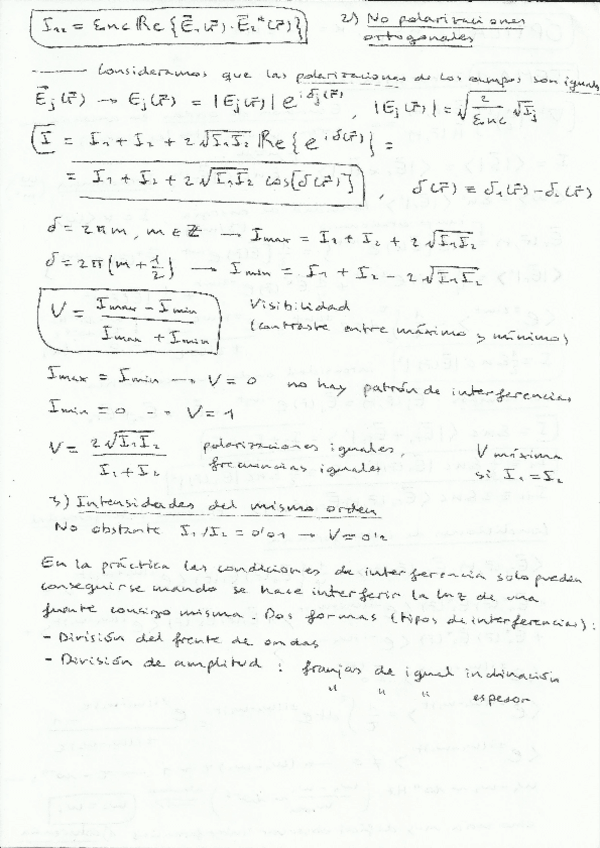 I₁₂ = ε₀nc Re{E⃗₁(r⃗)·E⃗₂*(r⃗)} 2) No polarizaciones
ortogonales
Consideramos que las polarizaciones de los campos son iguales
E⃗ⱼ(r⃗) → Eⱼ(r⃗) = |Eⱼ(r⃗)| e^{iδⱼ(r⃗)}, |Eⱼ(r⃗)| = √(2/(ε₀nc)) √Iⱼ
I = I₁ + I₂ + 2√(I₁I₂) Re{e^{iδ(r⃗)}} =
= I₁ + I₂ + 2√(I₁I₂) cos[δ(r⃗)], δ(r⃗) ≡ δ₁(r⃗) - δ₂(r⃗)
δ = 2πm, m ∈ ℤ → Imax = I₁ + I₂ + 2√(I₁I₂)
δ = 2π(m + 1/2) → Imin = I₁ + I₂ - 2√(I₁I₂)
V = (Imax - Imin)/(Imax + Imin) Visibilidad
(contraste entre máximo y mínimo)
Imax = Imin → V = 0 no hay patrón de interferencias
Imin = 0 → V = 1
V = 2√(I₁I₂)/(I₁ + I₂) polarizaciones iguales, V máxima
frecuencias iguales si I₁ = I₂
3) Intensidades del mismo orden
No obstante I₁/I₂ = 0'01 → V ≃ 0'2
En la práctica las condiciones de interferencia solo pueden
conseguirse cuando se hace interferir la luz de una
fuente consigo misma. Dos formas (tipos de interferencias):
- División del frente de ondas
- División de amplitud: franjas de igual inclinación
" " " espesor